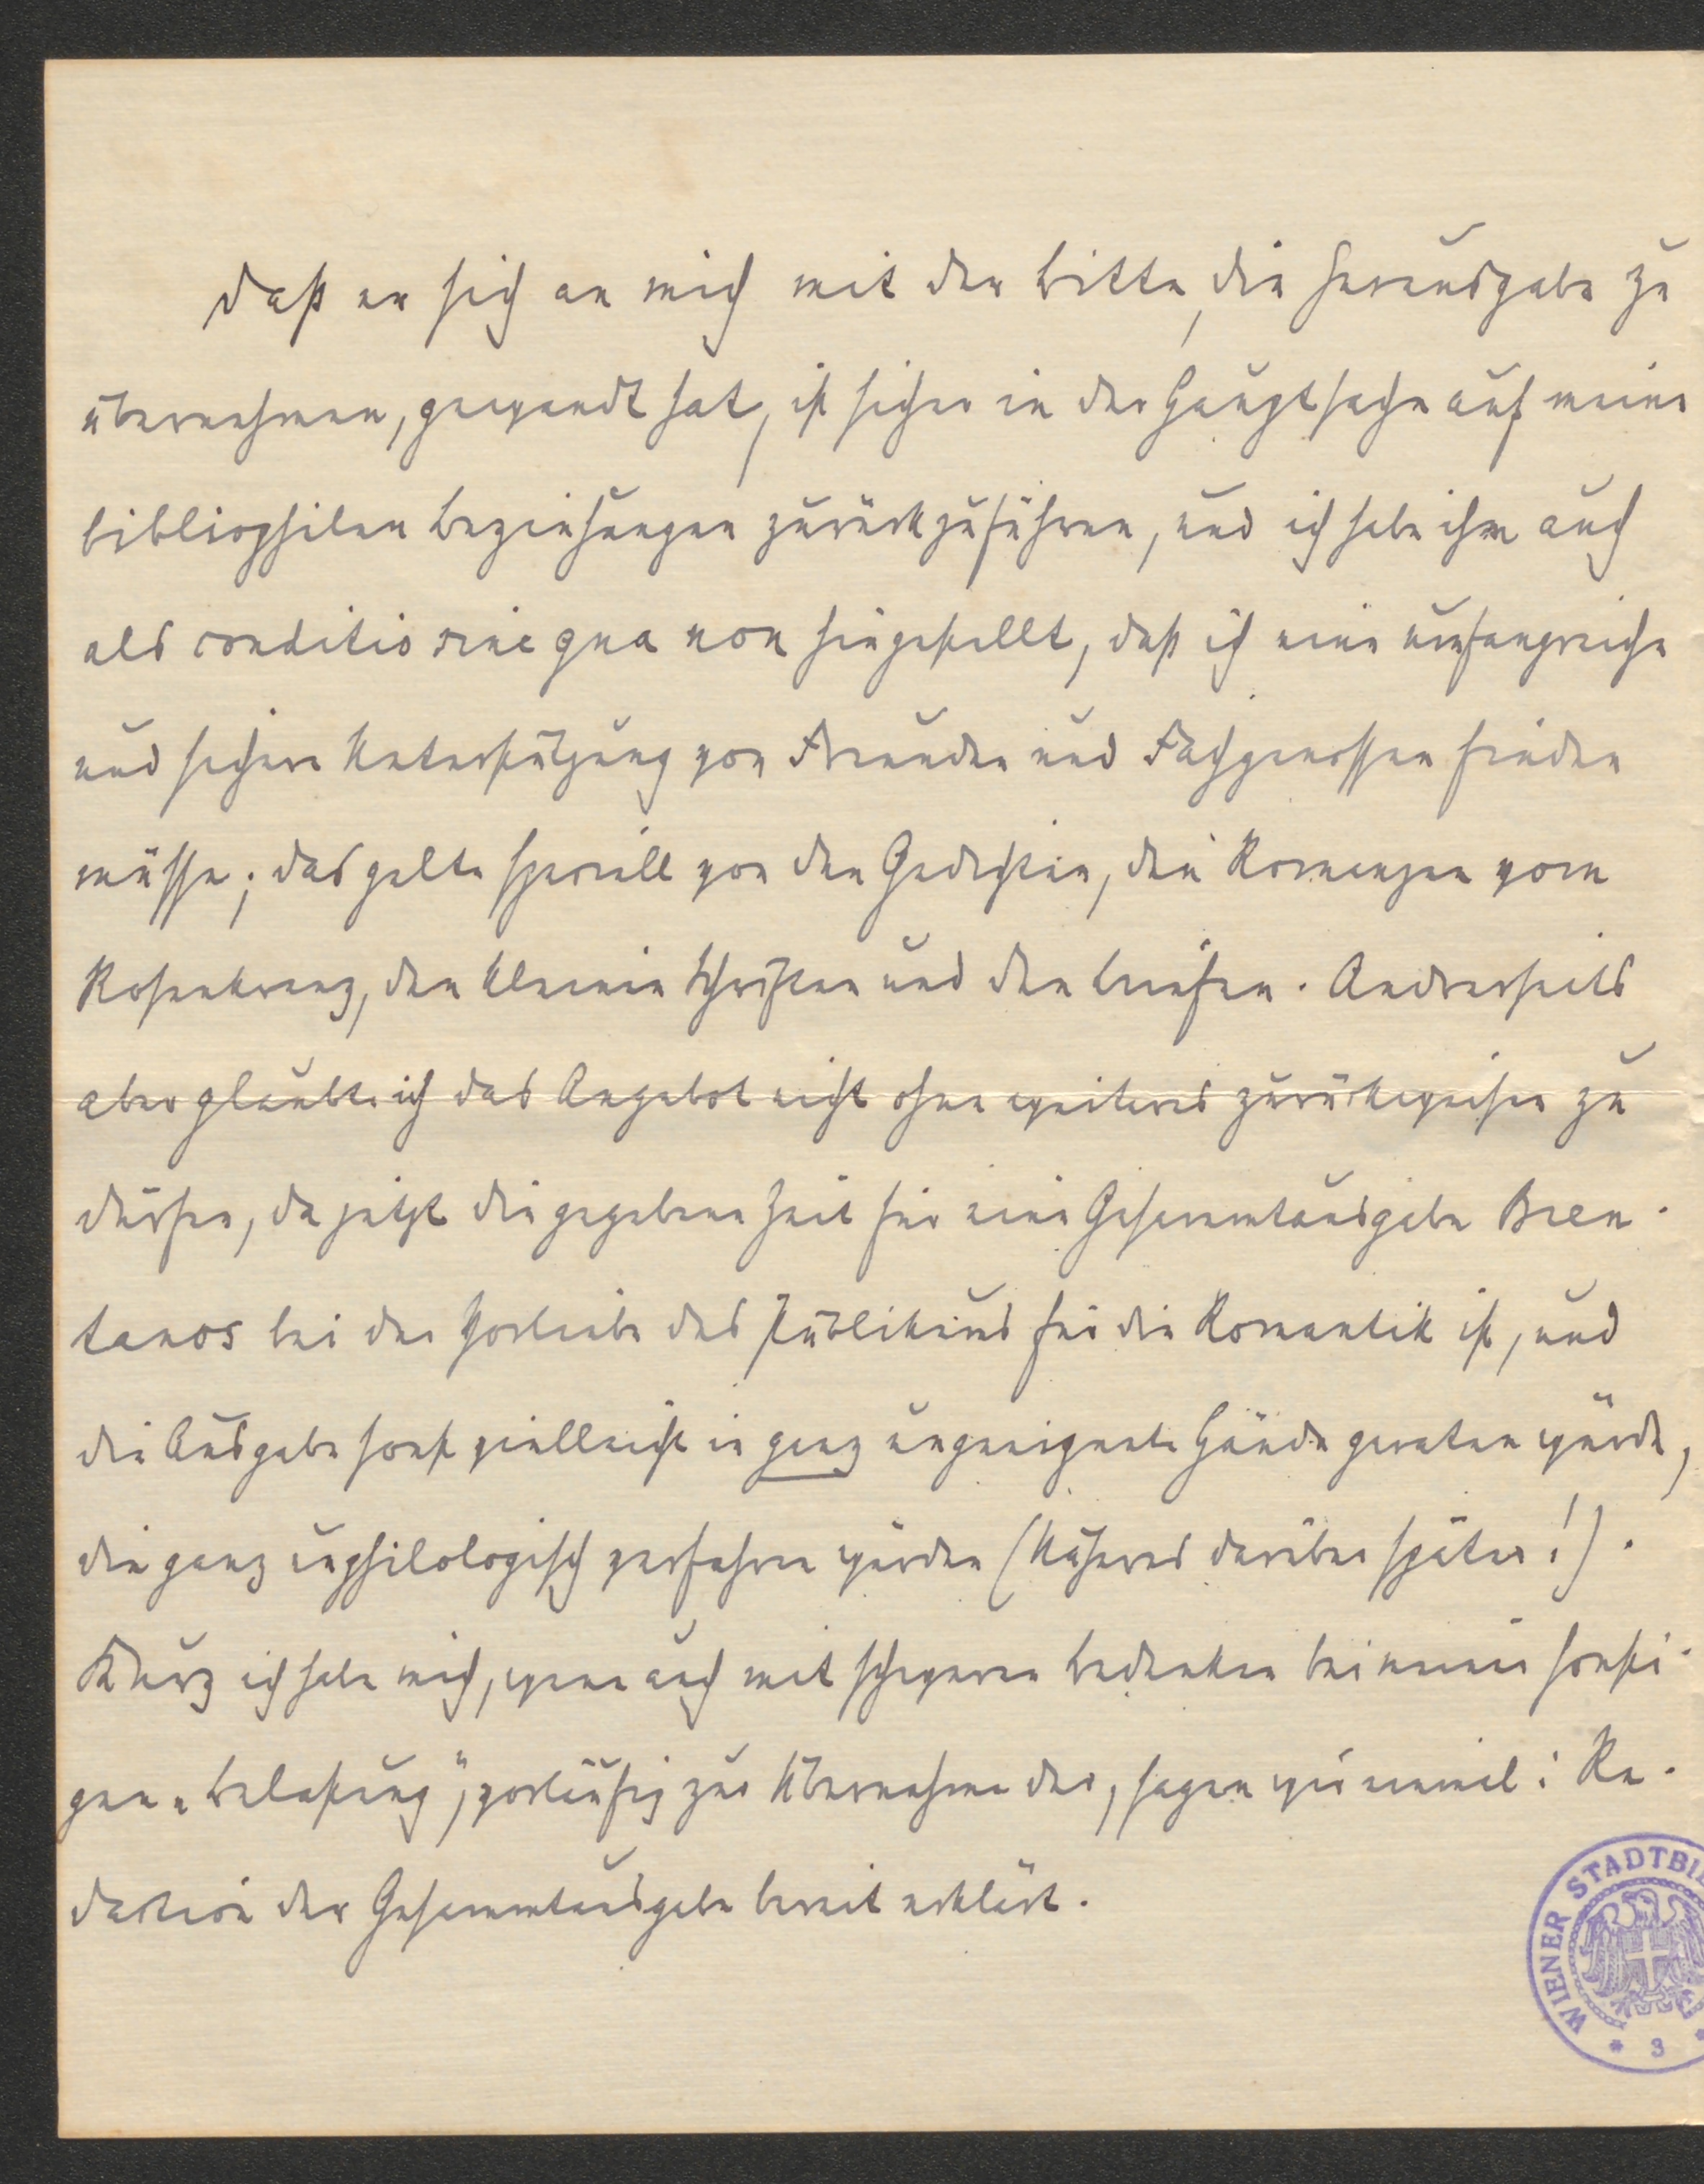 Daß er sich an mich mit der Bitte, die Herausgabe zu
übernehmen, gewandt hat, ist sicher in der Hauptsache auf meine
bibliophilen Beziehungen zurückzuführen, und ich habe ihm auch
als conditio sine qua non hingestellt, daß ich eine umfangreiche
und sichere Unterstützung von Freunden und Fachgenossen finden
müsse; das gelte speciell von den Gedichten, den Romanzen vom
Rosenkranz, den kleinen Schriften und den Briefen. Andrerseits
aber glaubte ich das Angebot nicht ohne weiteres zurückweisen zu
dürfen, da jetzt die gegebene Zeit für eine Gesammtausgabe Bren-
tanos bei der Vorliebe des Publikums für die Romantik ist, und
die Ausgabe sonst vielleicht in ganz ungeeignete Hände geraten würde,
die ganz unphilologisch verfahren würden (Näheres darüber später!).
Kurz ich habe mich, wenn auch mit schweren Bedenken bei meiner sonsti-
gen „Belastung“, vorläufig zur Übernahme der, sagen wir einmal: Re-
daktion der Gesammtausgabe bereit erklärt.
WIENER STADTBI
* 3 *